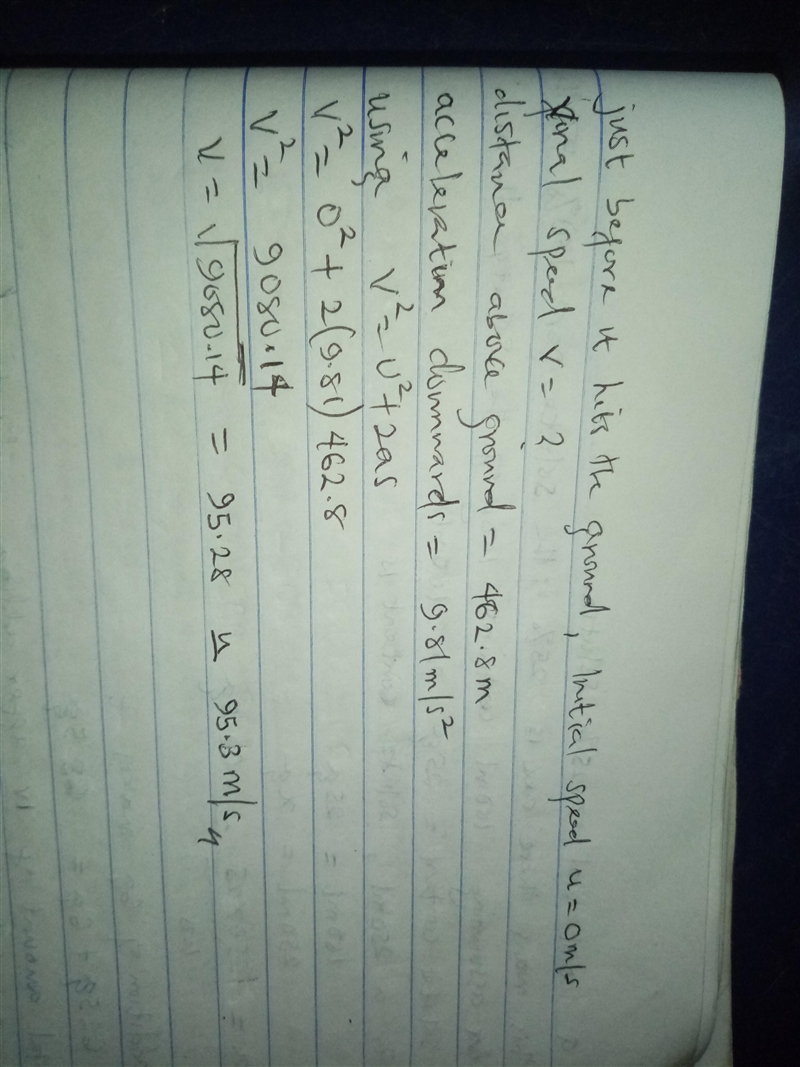 just before it hits the ground, Initial speed u = 0 m/s
final speed v = ?
distance above ground = 462.8 m
acceleration downwards = 9.81 m/s²
using v² = u² + 2as
v² = 0² + 2(9.81) 462.8
v² = 9080.14
v = √9080.14 = 95.28 ≃ 95.3 m/s